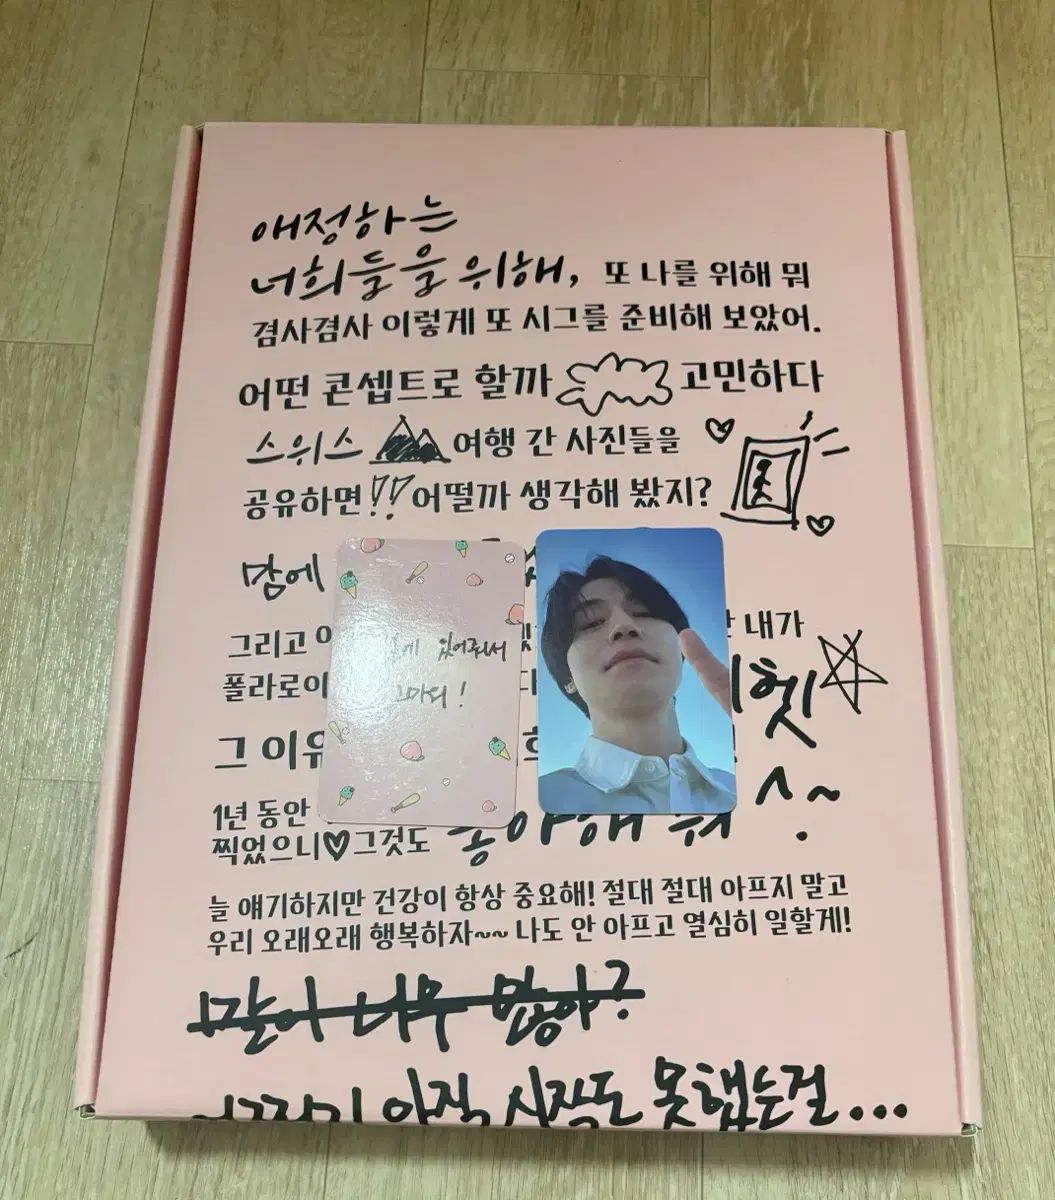 애정하는
너희들을 위해, 또 나를 위해 뭐
겸사겸사 이렇게 또 시그를 준비해 보았어.
어떤 콘셉트로 할까 고민하다
스위스 여행 간 사진들을
공유하면!! 어떨까 생각해 봤지?
맘에
그리고 내가
폴라로이
그 이유
있어줘서
고마워!
1년 동안
찍었으니♡그것도 좋아해 줘
^~
늘 얘기하지만 건강이 항상 중요해! 절대 절대 아프지 말고
우리 오래오래 행복하자~~ 나도 안 아프고 열심히 일할게!
말이 너무 많아?
아직 시작도 못했는걸...